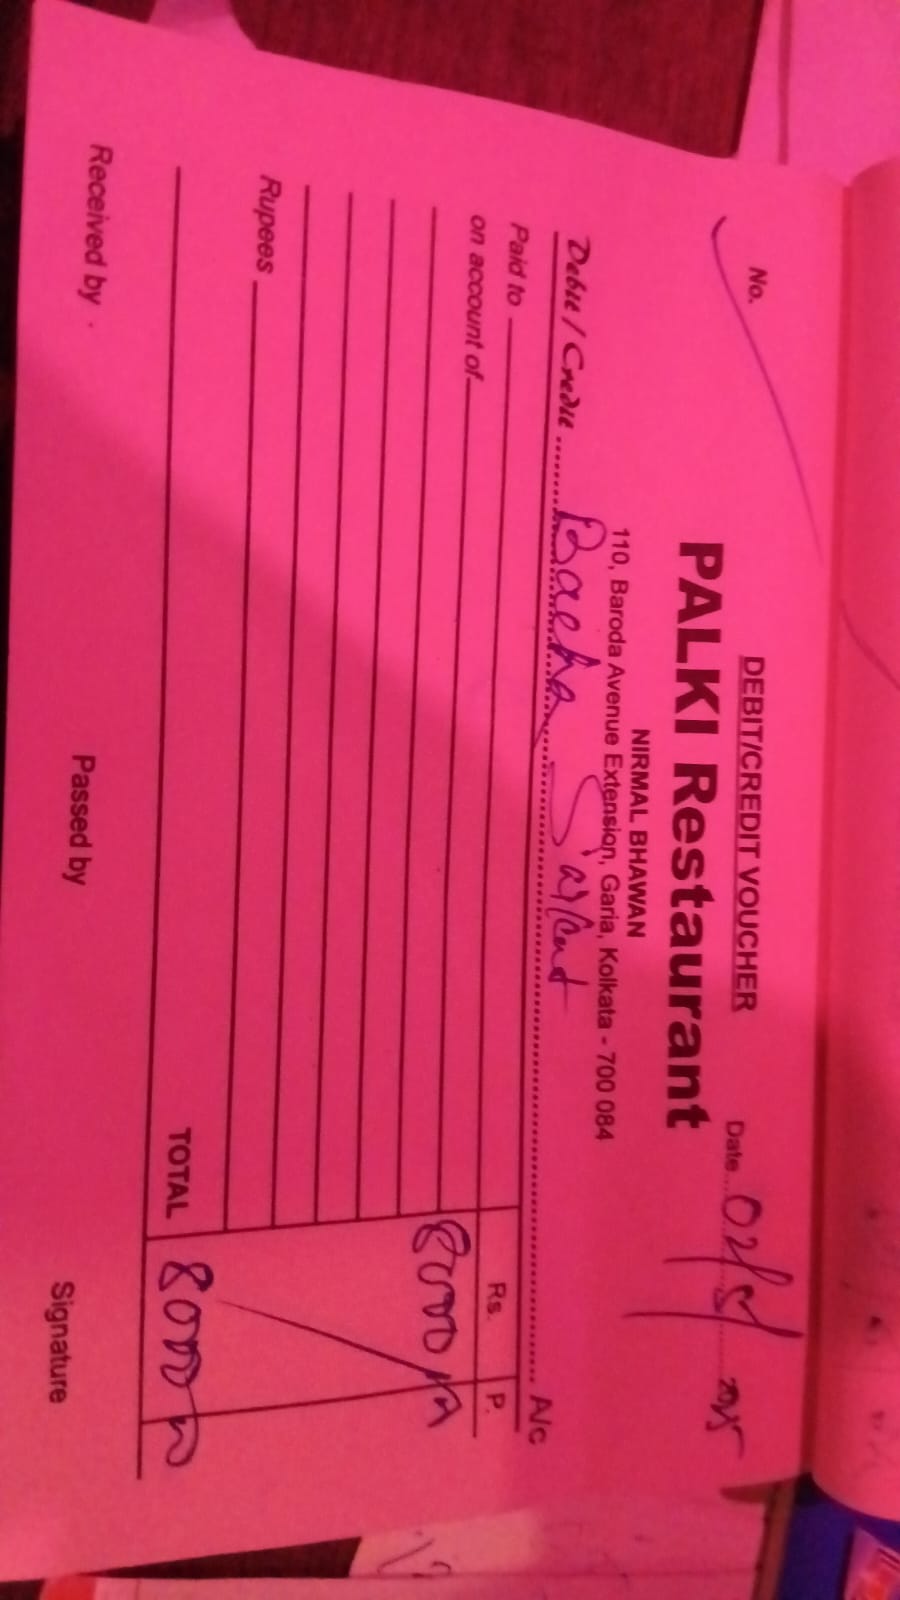 DEBIT/CREDIT VOUCHER
No. Date
PALKI Restaurant
NIRMAL BHAWAN
110, Baroda Avenue Extension, Garia, Kolkata - 700 084
Debit / Credit Bacha Sarkar A/c
Paid to Rs. P.
on account of 8000
Rupees
TOTAL 8000
Received by Passed by Signature